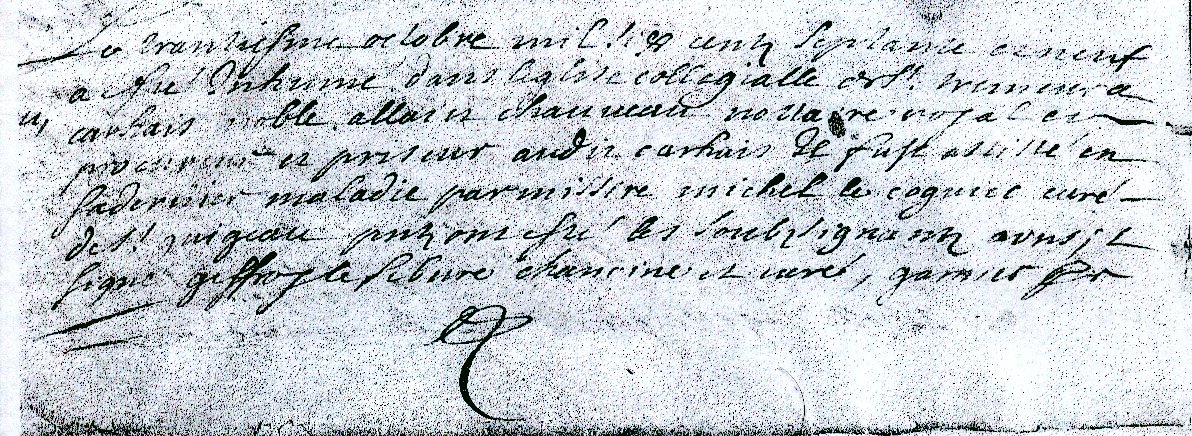 Le trantiesme octobre mil six centz septante et neuf
a esté Inhumé dans leglise collegialle de St. tremeur a
carhais noble allain chauveau nottaire royal et
procureur et priseur audit carhais Il fust assisté en
sa derniere maladie par missire michel le cognec curé
de St. quigeau pntz ont esté les soubzsignantz ainsy
signé geffroy le febure chanoine et curé, garnier pbr